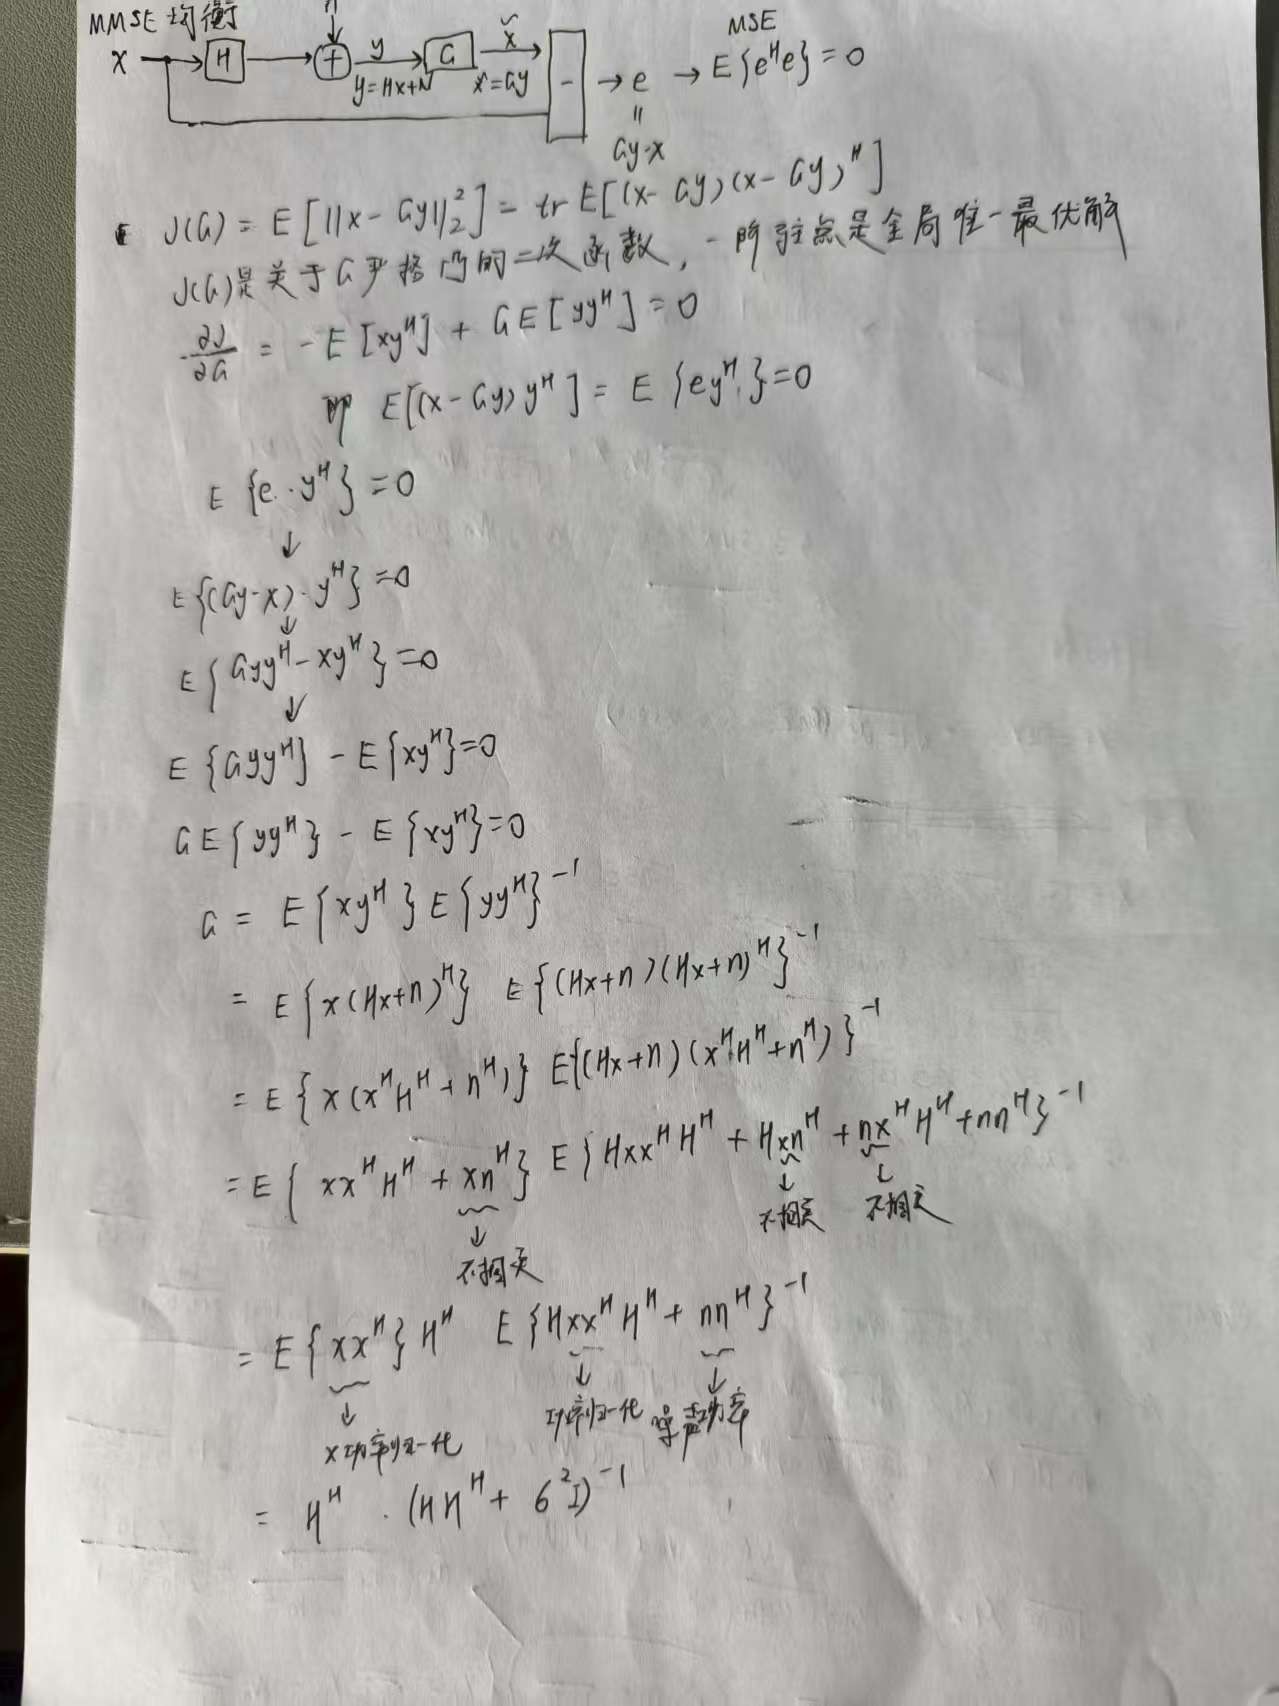 MMSE 均衡
n
x H + y G x̌ - → e → E{eᴴe} = 0
MSE
y=Hx+N x̌=Gy
"
Gy-x
J(G) = E[||x-Gy||₂²] = tr E[(x-Gy)(x-Gy)ᴴ]
J(G)是关于G严格凸的二次函数, 一阶驻点是全局唯一最优解
∂J/∂G = -E[xyᴴ] + GE[yyᴴ] = 0
即 E[(x-Gy)yᴴ] = E{eyᴴ}=0
E{e·yᴴ}=0
↓
E{(Gy-x)·yᴴ}=0
↓
E{Gyyᴴ-xyᴴ}=0
↓
E{Gyyᴴ} - E{xyᴴ}=0
GE{yyᴴ} - E{xyᴴ}=0
G = E{xyᴴ}E{yyᴴ}⁻¹
= E{x(Hx+n)ᴴ} E{(Hx+n)(Hx+n)ᴴ}⁻¹
= E{x(xᴴHᴴ+nᴴ)} E{(Hx+n)(xᴴHᴴ+nᴴ)}⁻¹
= E{xxᴴHᴴ+xnᴴ} E{HxxᴴHᴴ+Hxnᴴ+nxᴴHᴴ+nnᴴ}⁻¹
↓ ↓ ↓
不相关 不相关 不相关
= E{xxᴴ}Hᴴ E{HxxᴴHᴴ+nnᴴ}⁻¹
↓ ↓ ↓
x功率归一化 功率归一化 噪声功率
= Hᴴ·(HHᴴ+6²I)⁻¹